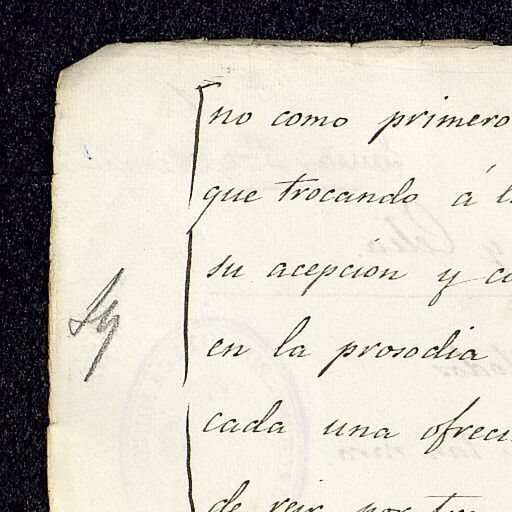 no como primero
que trocando á l
su acepcion y co
en la prosodia
cada una ofreci
de reir por